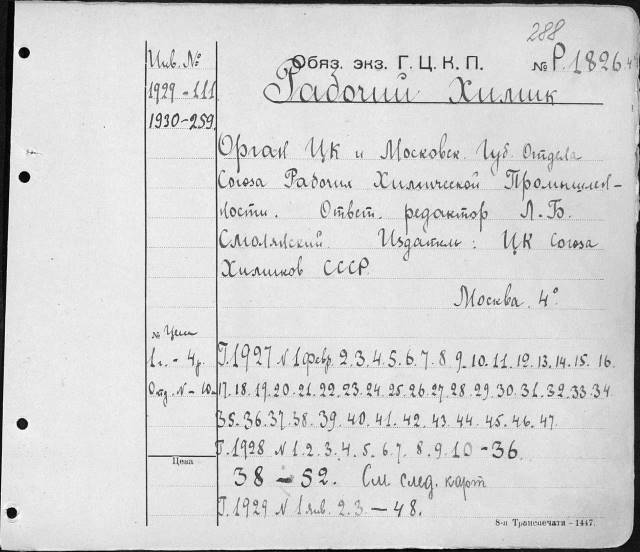 288
Инв. №
Обяз. экз. Г. Ц. К. П. № Р.1826
1929-111
Рабочий Химик
1930-259
Орган ЦК и Московск. Губ. Отдела
Союза Рабочих Химической Промышлен-
ности. Ответ. редактор Л. Б.
Смолянский. Издатель: ЦК Союза
Химиков СССР.
Москва. 4°
№ Цена
1 г. - 4 р.
Отд. N - 10
Г. 1927 N 1 февр. 2.3.4.5.6.7.8.9.10.11.12.13.14.15.16
17.18.19.20.21.22.23.24.25.26.27.28.29.30.31.32.33.34
35.36.37.38.39.40.41.42.43.44.45.46.47.
Г. 1928 N 1.2.3.4.5.6.7.8.9.10-36.
Цена
38-52. См след. карт
Г. 1929 N 1 янв. 2.3-48.
8-я Транспечати - 1447.